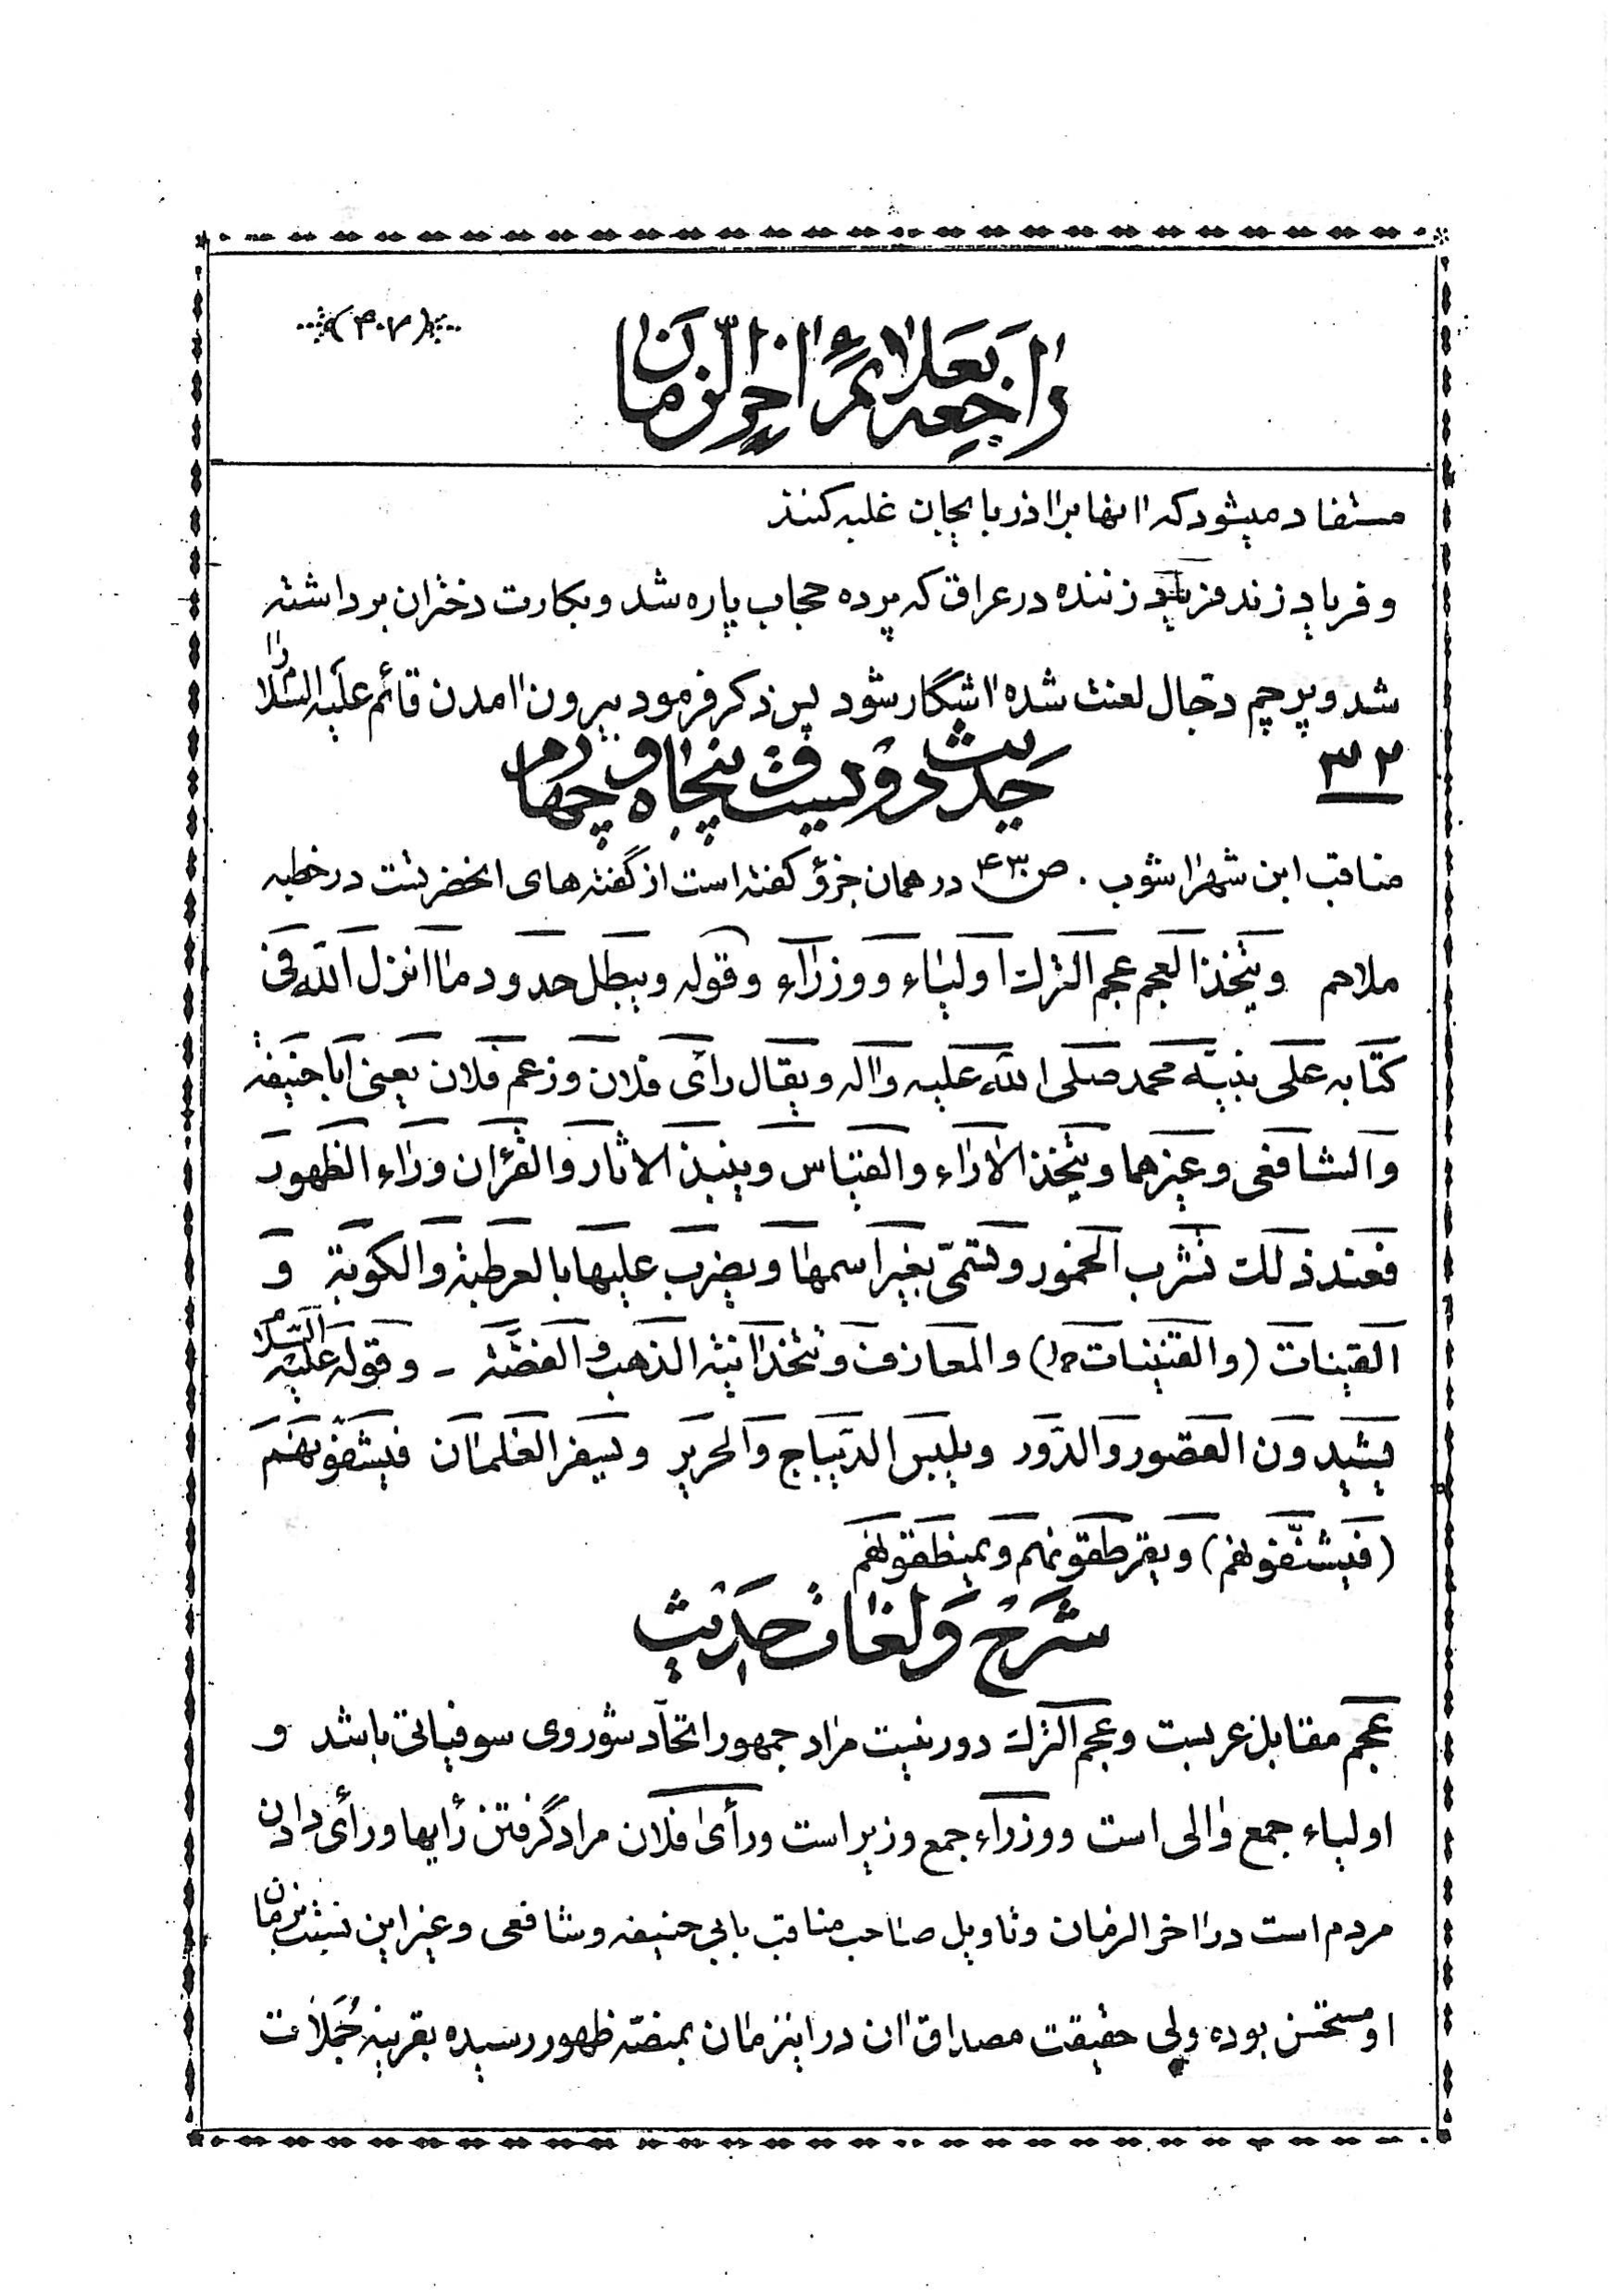 (۴۰۷)
راجعه بعلائم اخر الزمان
مستفاد میشود که انها بر اذربایجان غلبه کنند
و فریاد زند فریاد زننده در عراق که پرده حجاب پاره شد و بکارت دختران برداشته
شد و پرچم دجال لعنت شده اشگار شود پس ذکر فرمود بیرون امدن قائم علیه السلام را
۳۲
حدیث دویست و پنجاه و چهارم
مناقب ابن شهراشوب . ص ۴۳۰ در همان جزؤ گفته است از گفته های انحضرتست در خطبه
ملاحم ویتخذ العجم عجم الترك اولیاء ووزراء وقوله ویبطل حدود ما انزل الله فی
کتابه علی نبیه محمد صلی الله علیه واله ویقال رأی فلان وزعم فلان یعنی ابا حنیفة
والشافعی وغیرهما ویتخذ الاراء والقیاس وینبذ الاثار والقرٰان وراء الظهور
فعند ذلك تشرب الخمور وتسمی بغیر اسمها ویضرب علیها بالعرطبة والکوبة و
القینات (والقینات ل) والمعازف وتتخذ انیة الذهب والفضة ـ وقوله علیه السلام
یشیدون القصور والدور ویلبس الدیباج والحریر ویسفر الغلمان فیشنفونهم
(فیشنّفونهم) ویقرطقونهم ویمنطقونهم
شرح ولغات حدیث
عجم مقابل عربست وعجم الترك دور نیست مراد جمهور اتحاد شوروی سوفیاتی باشد و
اولیاء جمع والی است ووزراء جمع وزیر است ورأی فلان مراد گرفتن رأیها ورأی دادن
مردم است در اخر الزمان وتاویل صاحب مناقب بابی حنیفه وشافعی وغیر این نسبت بزمان
او مستحسن بوده ولی حقیقت مصداق ان در اینزمان بمنصه ظهور رسیده بقرینه جملات